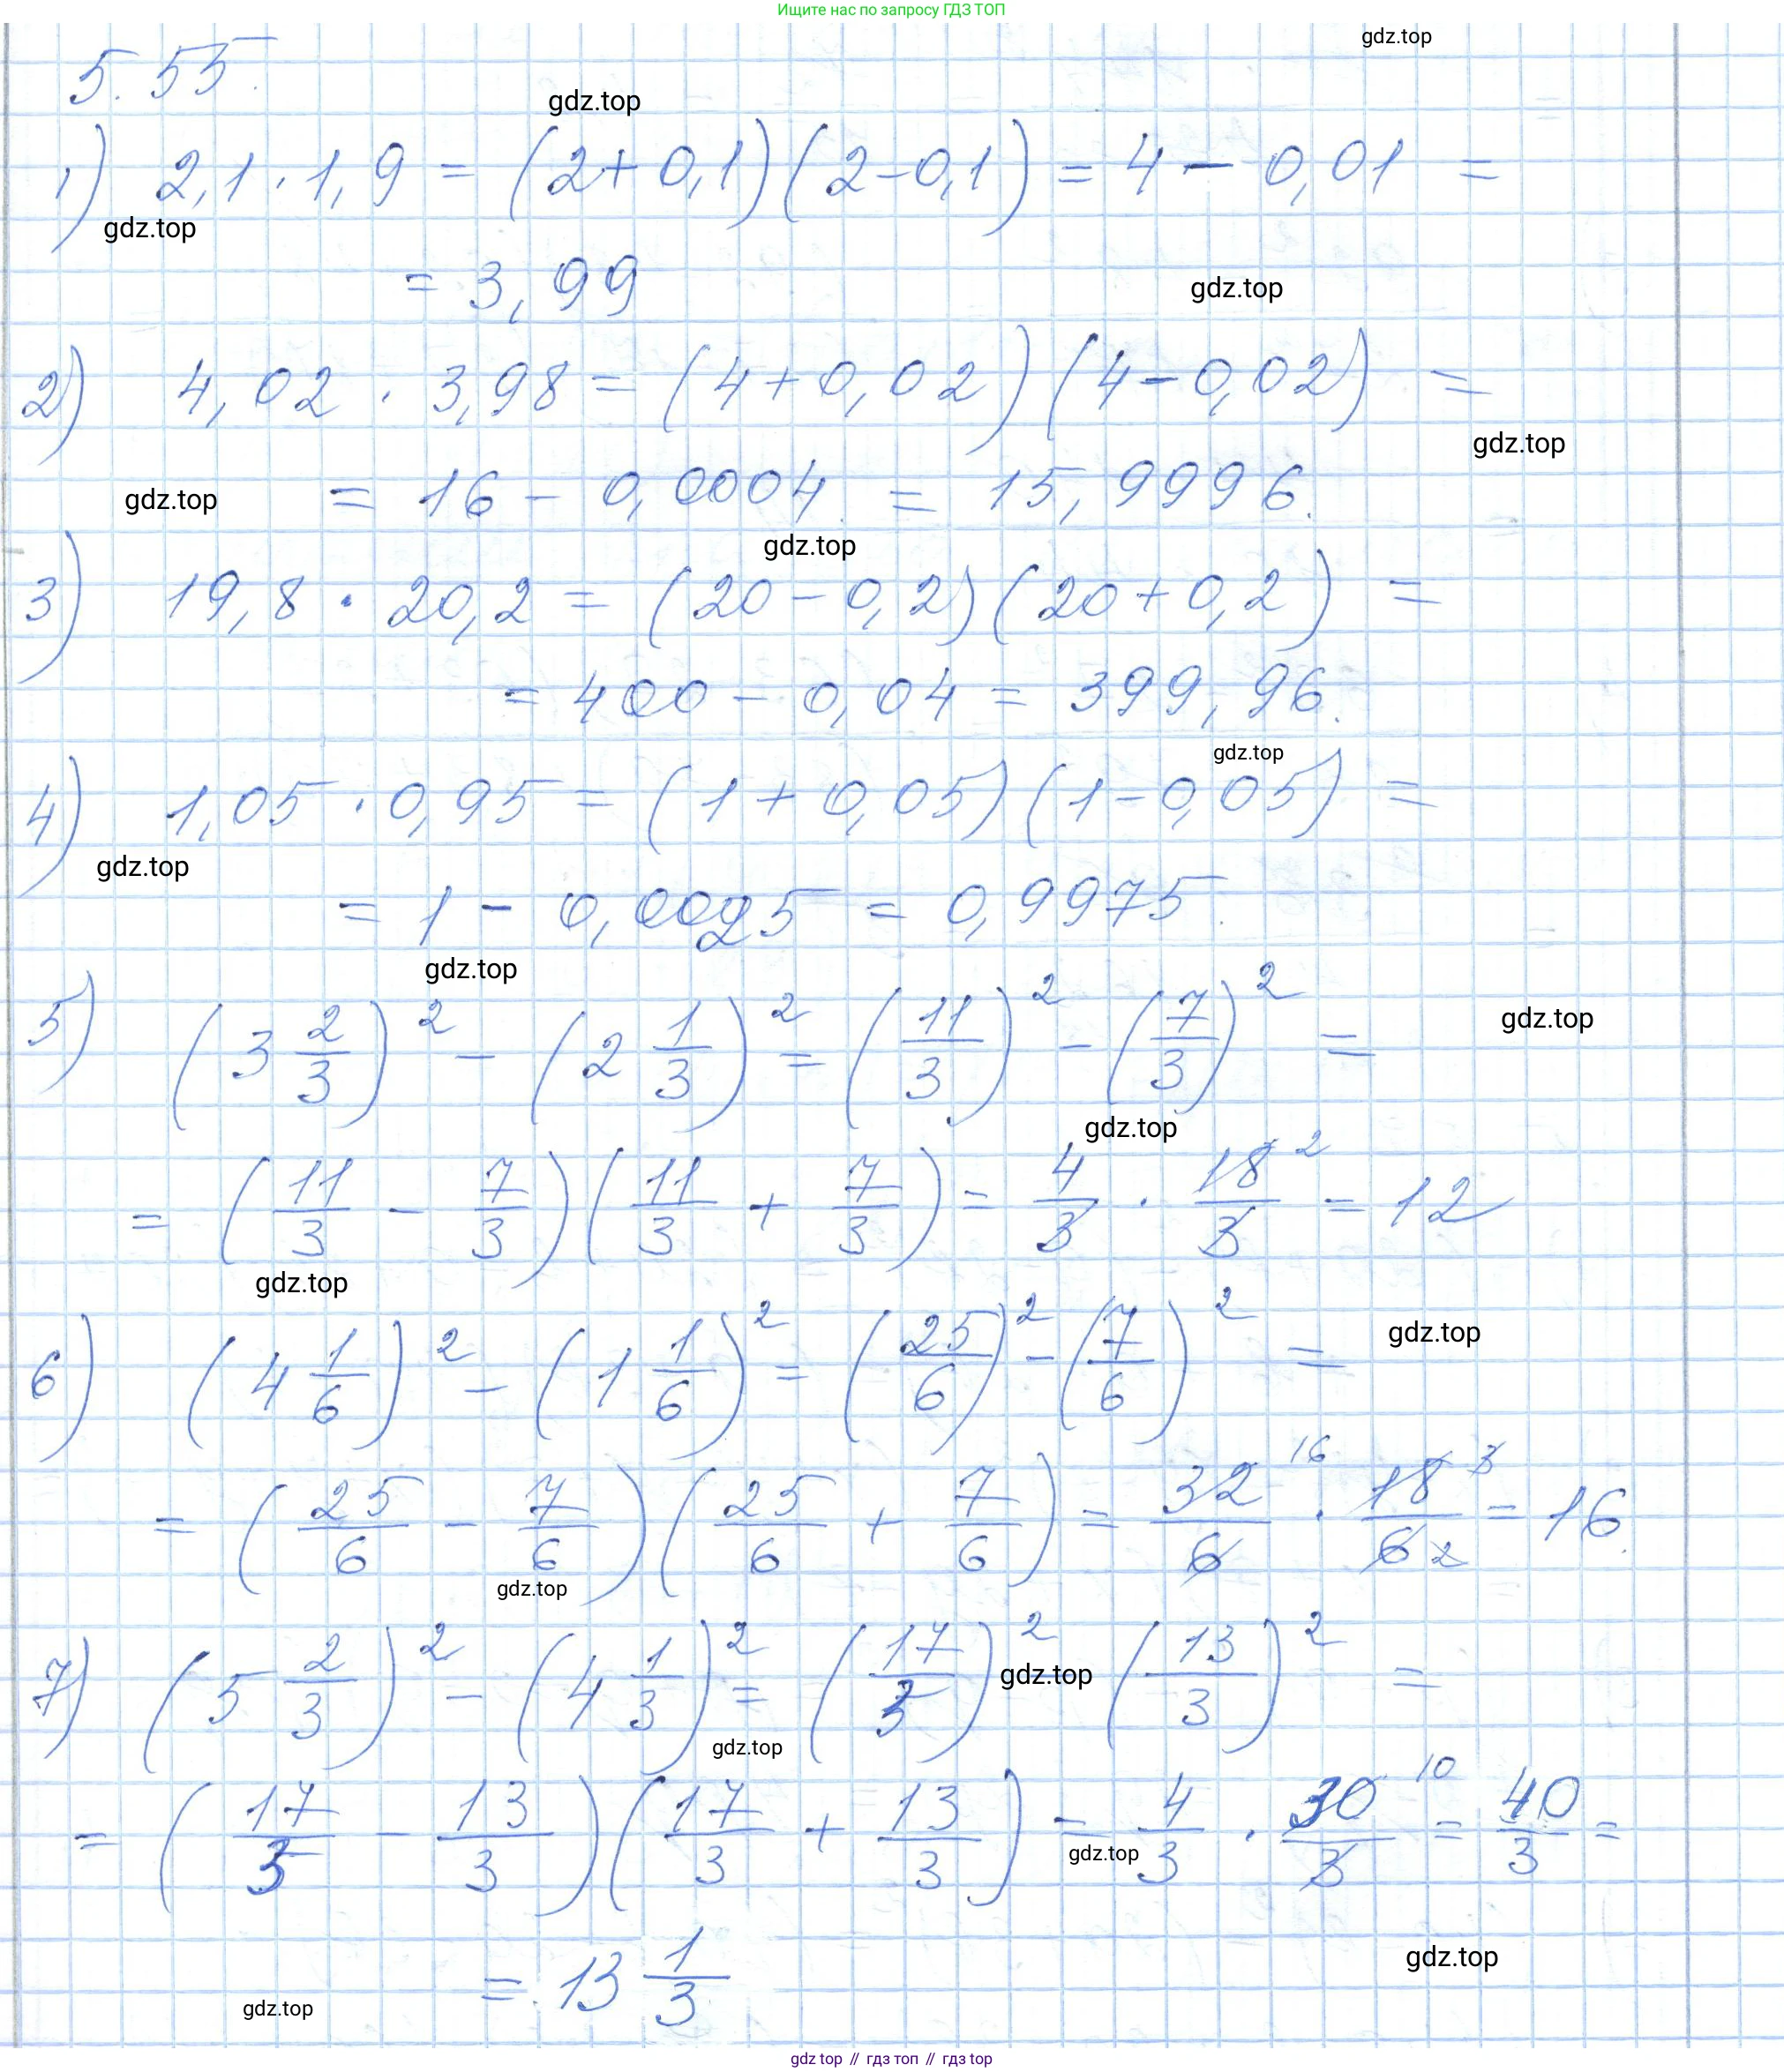 Ищите нас по запросу ГДЗ ТОП
gdz.top
5.55.
gdz.top
1) 2,1 · 1,9 = (2 + 0,1)(2 - 0,1) = 4 - 0,01 =
gdz.top
= 3,99
gdz.top
2) 4,02 · 3,98 = (4 + 0,02)(4 - 0,02) =
gdz.top
= 16 - 0,0004 = 15,9996.
gdz.top
gdz.top
3) 19,8 · 20,2 = (20 - 0,2)(20 + 0,2) =
= 400 - 0,04 = 399,96.
gdz.top
4) 1,05 · 0,95 = (1 + 0,05)(1 - 0,05) =
gdz.top
= 1 - 0,0025 = 0,9975.
gdz.top
5) (3 2/3)² - (2 1/3)² = (11/3)² - (7/3)² =
gdz.top
gdz.top
= (11/3 - 7/3)(11/3 + 7/3) = 4/3 · 18/3 2 = 12
gdz.top
6) (4 1/6)² - (1 1/6)² = (25/6)² - (7/6)² =
gdz.top
= (25/6 - 7/6)(25/6 + 7/6) = 32/6 16 · 18/6 3 2 = 16.
gdz.top
7) (5 2/3)² - (4 1/3)² = (17/3)² gdz.top (13/3)² =
gdz.top
= (17/3 - 13/3)(17/3 + 13/3) = 4/3 · 30/3 10 = 40/3 =
gdz.top
= 13 1/3
gdz.top
gdz.top
gdz top // гдз топ // гдз top